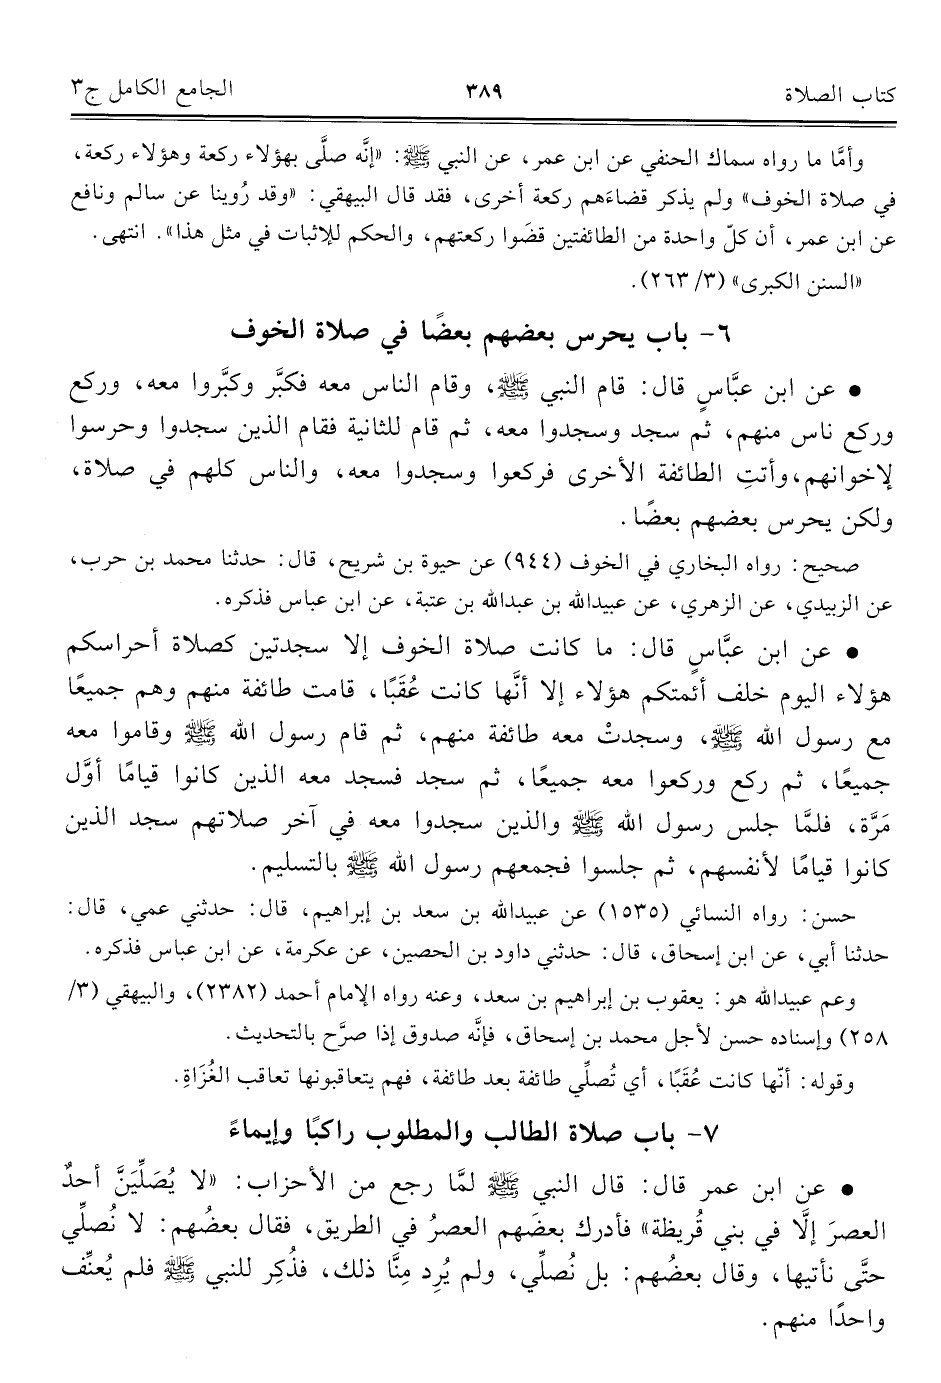 كتاب الصلاة ٣٨٩ الجامع الكامل ج٣
وأمَّا ما رواه سماك الحنفي عن ابن عمر، عن النبي ﷺ: «إنَّه صلَّى بهؤلاء ركعة وهؤلاء ركعة،
في صلاة الخوف» ولم يذكر قضاءَهم ركعة أخرى، فقد قال البيهقي: «وقد رُوينا عن سالم ونافع
عن ابن عمر، أن كلّ واحدة من الطائفتين قضَوا ركعتهم، والحكم للإثبات في مثل هذا». انتهى.
«السنن الكبرى» (٣/ ٢٦٣).
٦- باب يحرس بعضهم بعضًا في صلاة الخوف
• عن ابن عبَّاسٍ قال: قام النبي ﷺ، وقام الناس معه فكبَّر وكبَّروا معه، وركع
وركع ناس منهم، ثم سجد وسجدوا معه، ثم قام للثانية فقام الذين سجدوا وحرسوا
لإخوانهم،وأتتِ الطائفة الأخرى فركعوا وسجدوا معه، والناس كلهم في صلاة،
ولكن يحرس بعضهم بعضًا.
صحيح: رواه البخاري في الخوف (٩٤٤) عن حيوة بن شريح، قال: حدثنا محمد بن حرب،
عن الزبيدي، عن الزهري، عن عبيدالله بن عبدالله بن عتبة، عن ابن عباس فذكره.
• عن ابن عبَّاسٍ قال: ما كانت صلاة الخوف إلا سجدتين كصلاة أحراسكم
هؤلاء اليوم خلف أئمتكم هؤلاء إلا أنَّها كانت عُقَبًا، قامت طائفة منهم وهم جميعًا
مع رسول الله ﷺ، وسجدتْ معه طائفة منهم، ثم قام رسول الله ﷺ وقاموا معه
جميعًا، ثم ركع وركعوا معه جميعًا، ثم سجد فسجد معه الذين كانوا قيامًا أوَّل
مَرَّة، فلمَّا جلس رسول الله ﷺ والذين سجدوا معه في آخر صلاتهم سجد الذين
كانوا قيامًا لأنفسهم، ثم جلسوا فجمعهم رسول الله ﷺ بالتسليم.
حسن: رواه النسائي (١٥٣٥) عن عبيدالله بن سعد بن إبراهيم، قال: حدثني عمي، قال:
حدثنا أبي، عن ابن إسحاق، قال: حدثني داود بن الحصين، عن عكرمة، عن ابن عباس فذكره.
وعم عبيدالله هو: يعقوب بن إبراهيم بن سعد، وعنه رواه الإمام أحمد (٢٣٨٢)، والبيهقي (٣/
٢٥٨) وإسناده حسن لأجل محمد بن إسحاق، فإنَّه صدوق إذا صرَّح بالتحديث.
وقوله: أنّها كانت عُقَبًا، أي تُصلِّي طائفة بعد طائفة، فهم يتعاقبونها تعاقب الغُزَاةِ.
٧- باب صلاة الطالب والمطلوب راكبًا وإيماءً
• عن ابن عمر قال: قال النبي ﷺ لمَّا رجع من الأحزاب: «لا يُصَلِّيَنَّ أحدٌ
العصرَ إلَّا في بني قُريظة» فأدرك بعضَهم العصرُ في الطريق، فقال بعضُهم: لا نُصلِّي
حتَّى نأتيها، وقال بعضُهم: بل نُصلِّي، ولم يُرِد مِنَّا ذلك، فذُكِر للنبي ﷺ فلم يُعنِّف
واحدًا منهم.